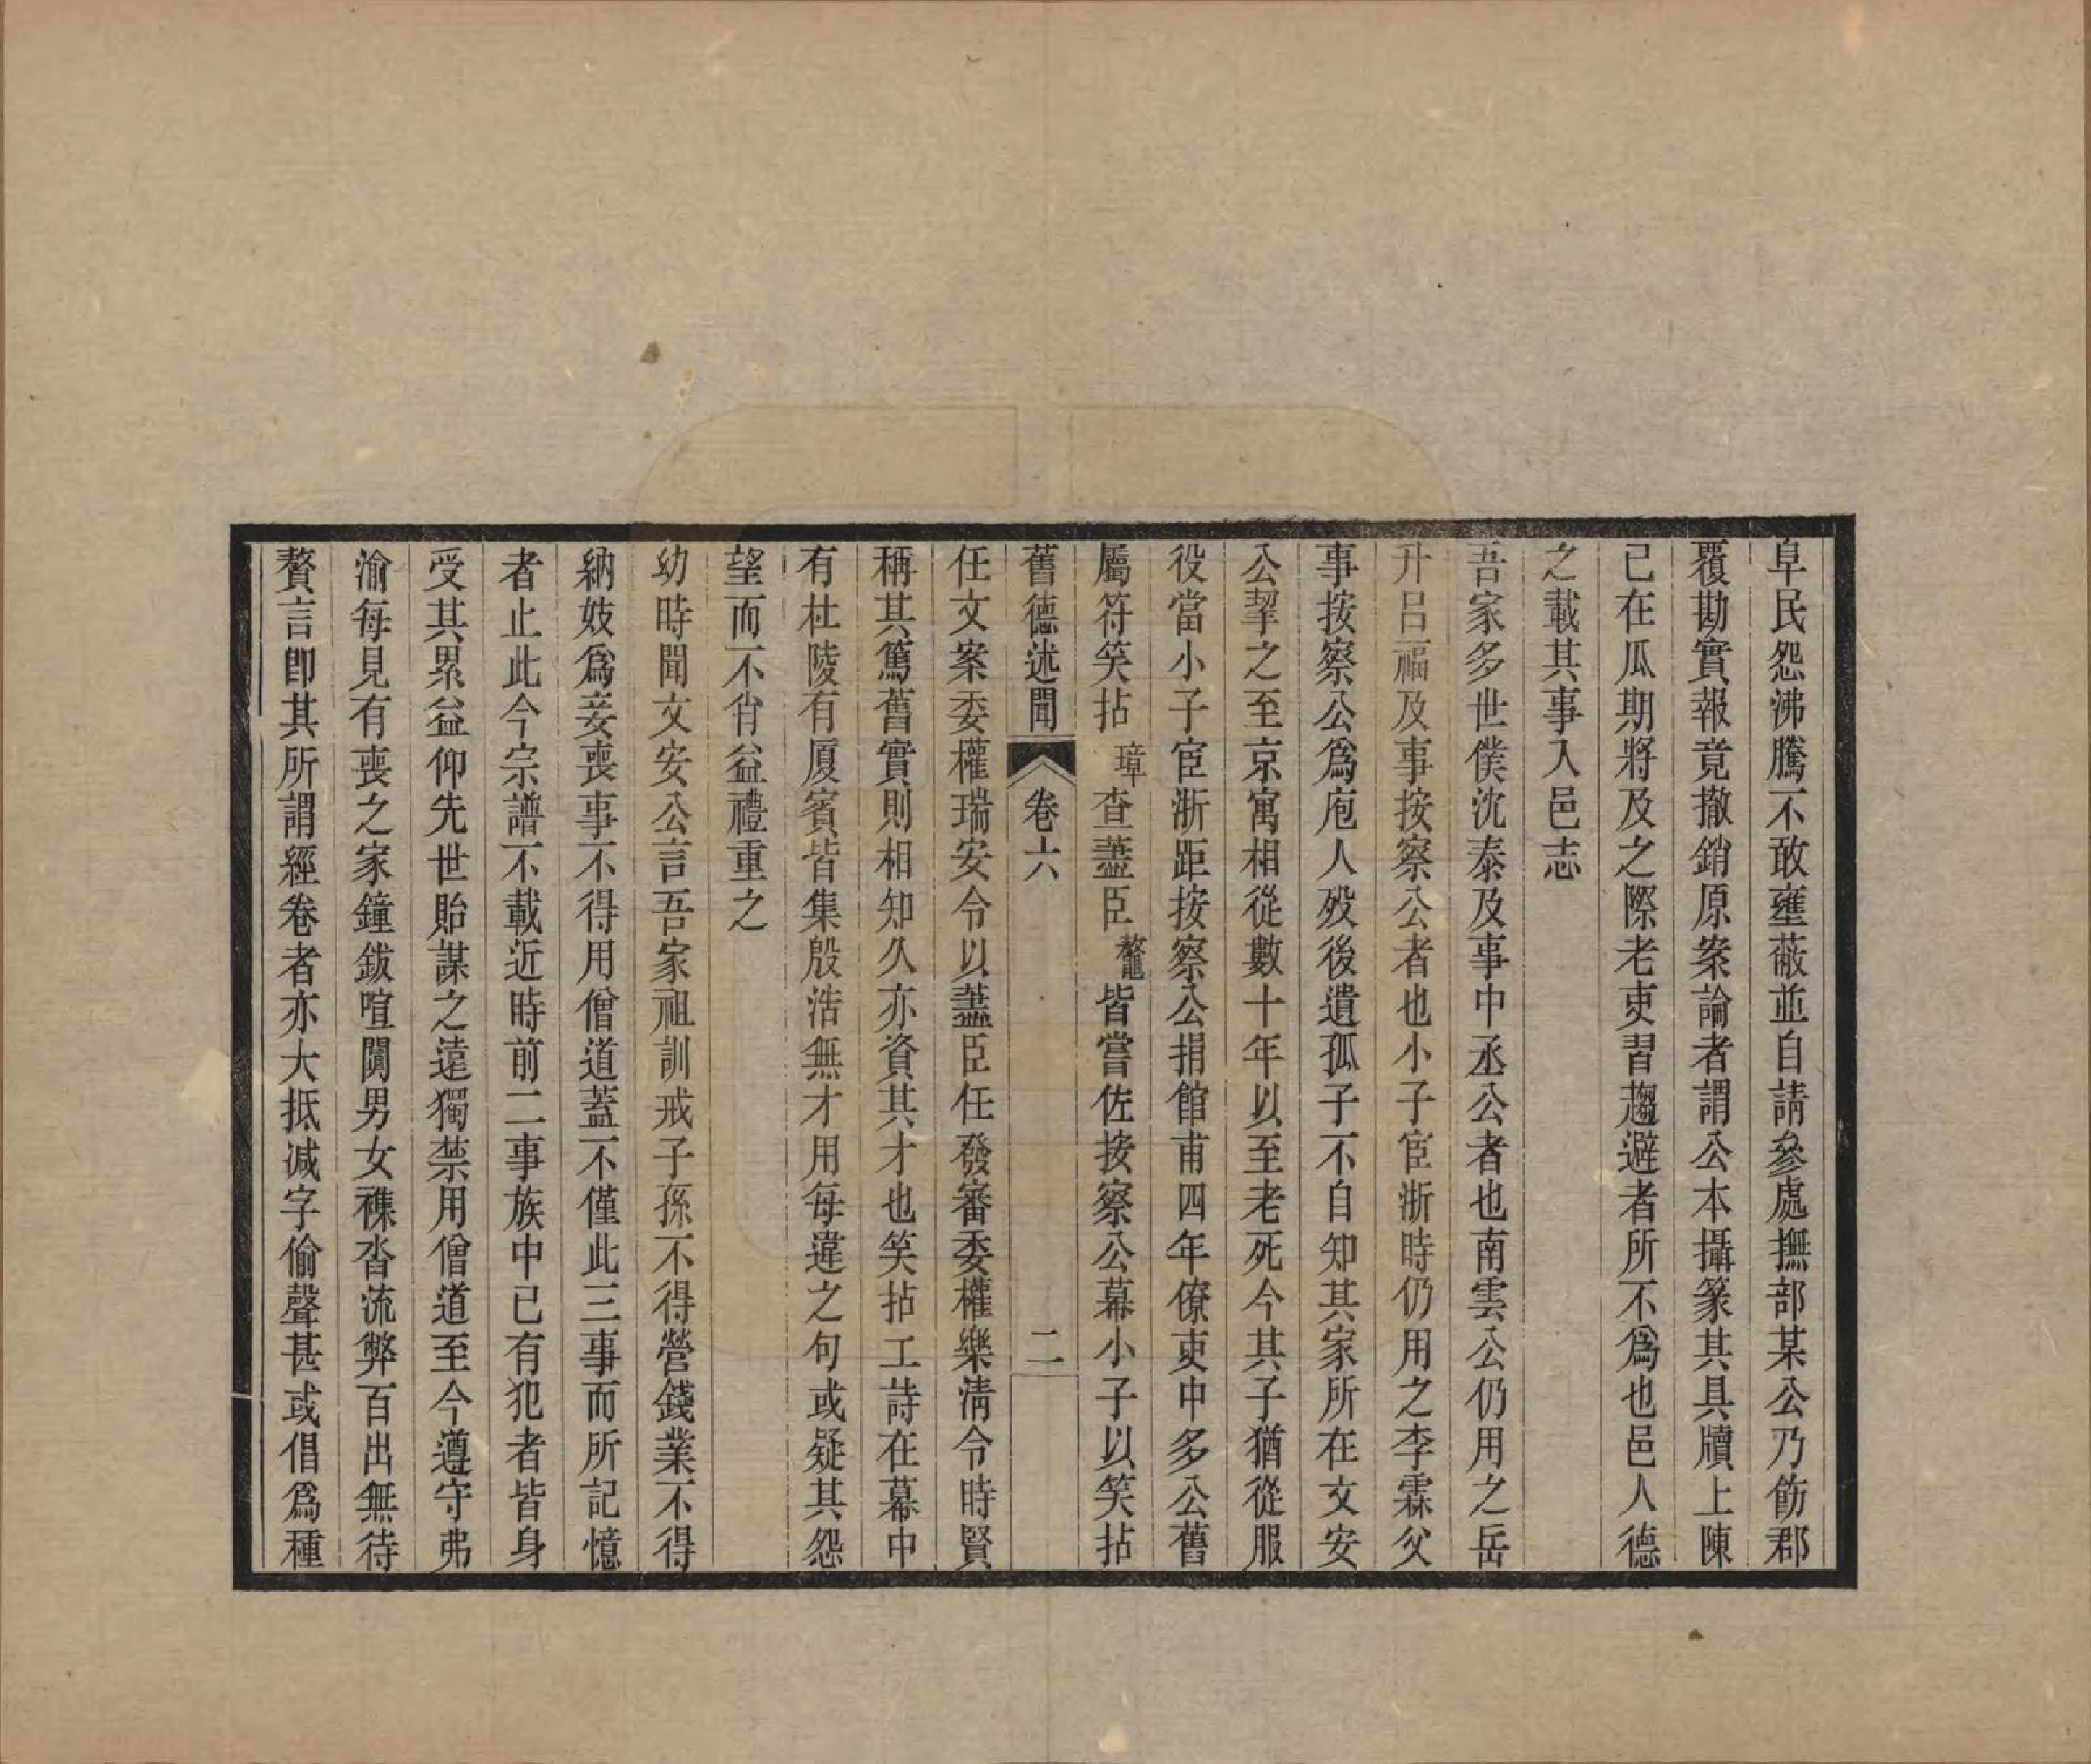 阜民怨沸騰不敢壅蔽並自請參處撫部某公乃飭郡
覆勘實報竟撤銷原案論者謂公本攝篆其具牘上陳
已在瓜期將及之際老吏習趨避者所不爲也邑人德
之載其事入邑志
吾家多世僕沈泰及事中丞公者也南雲公仍用之岳
升呂福及事按察公者也小子宦浙時仍用之李霖父
事按察公爲庖人歿後遺孤子不自知其家所在文安
公挈之至京寓相從數十年以至老死今其子猶從服
役當小子宦浙距按察公捐館甫四年僚吏中多公舊
屬符笑拈璋查藎臣鰲皆嘗佐按察公幕小子以笑拈
舊德述聞 卷六 二
任文案委權瑞安令以藎臣任發審委權樂清令時賢
稱其篤舊實則相知久亦資其才也笑拈工詩在幕中
有杜陵有厦賓皆集殷浩無才用每違之句或疑其怨
望而不肖益禮重之
幼時聞文安公言吾家祖訓戒子孫不得營錢業不得
納妓爲妾喪事不得用僧道蓋不僅此三事而所記憶
者止此今宗譜不載近時前二事族中已有犯者皆身
受其累益仰先世貽謀之遠獨禁用僧道至今遵守弗
渝每見有喪之家鐘鈸喧闐男女襍沓流弊百出無待
贅言卽其所謂經卷者亦大抵減字偷聲甚或倡爲種